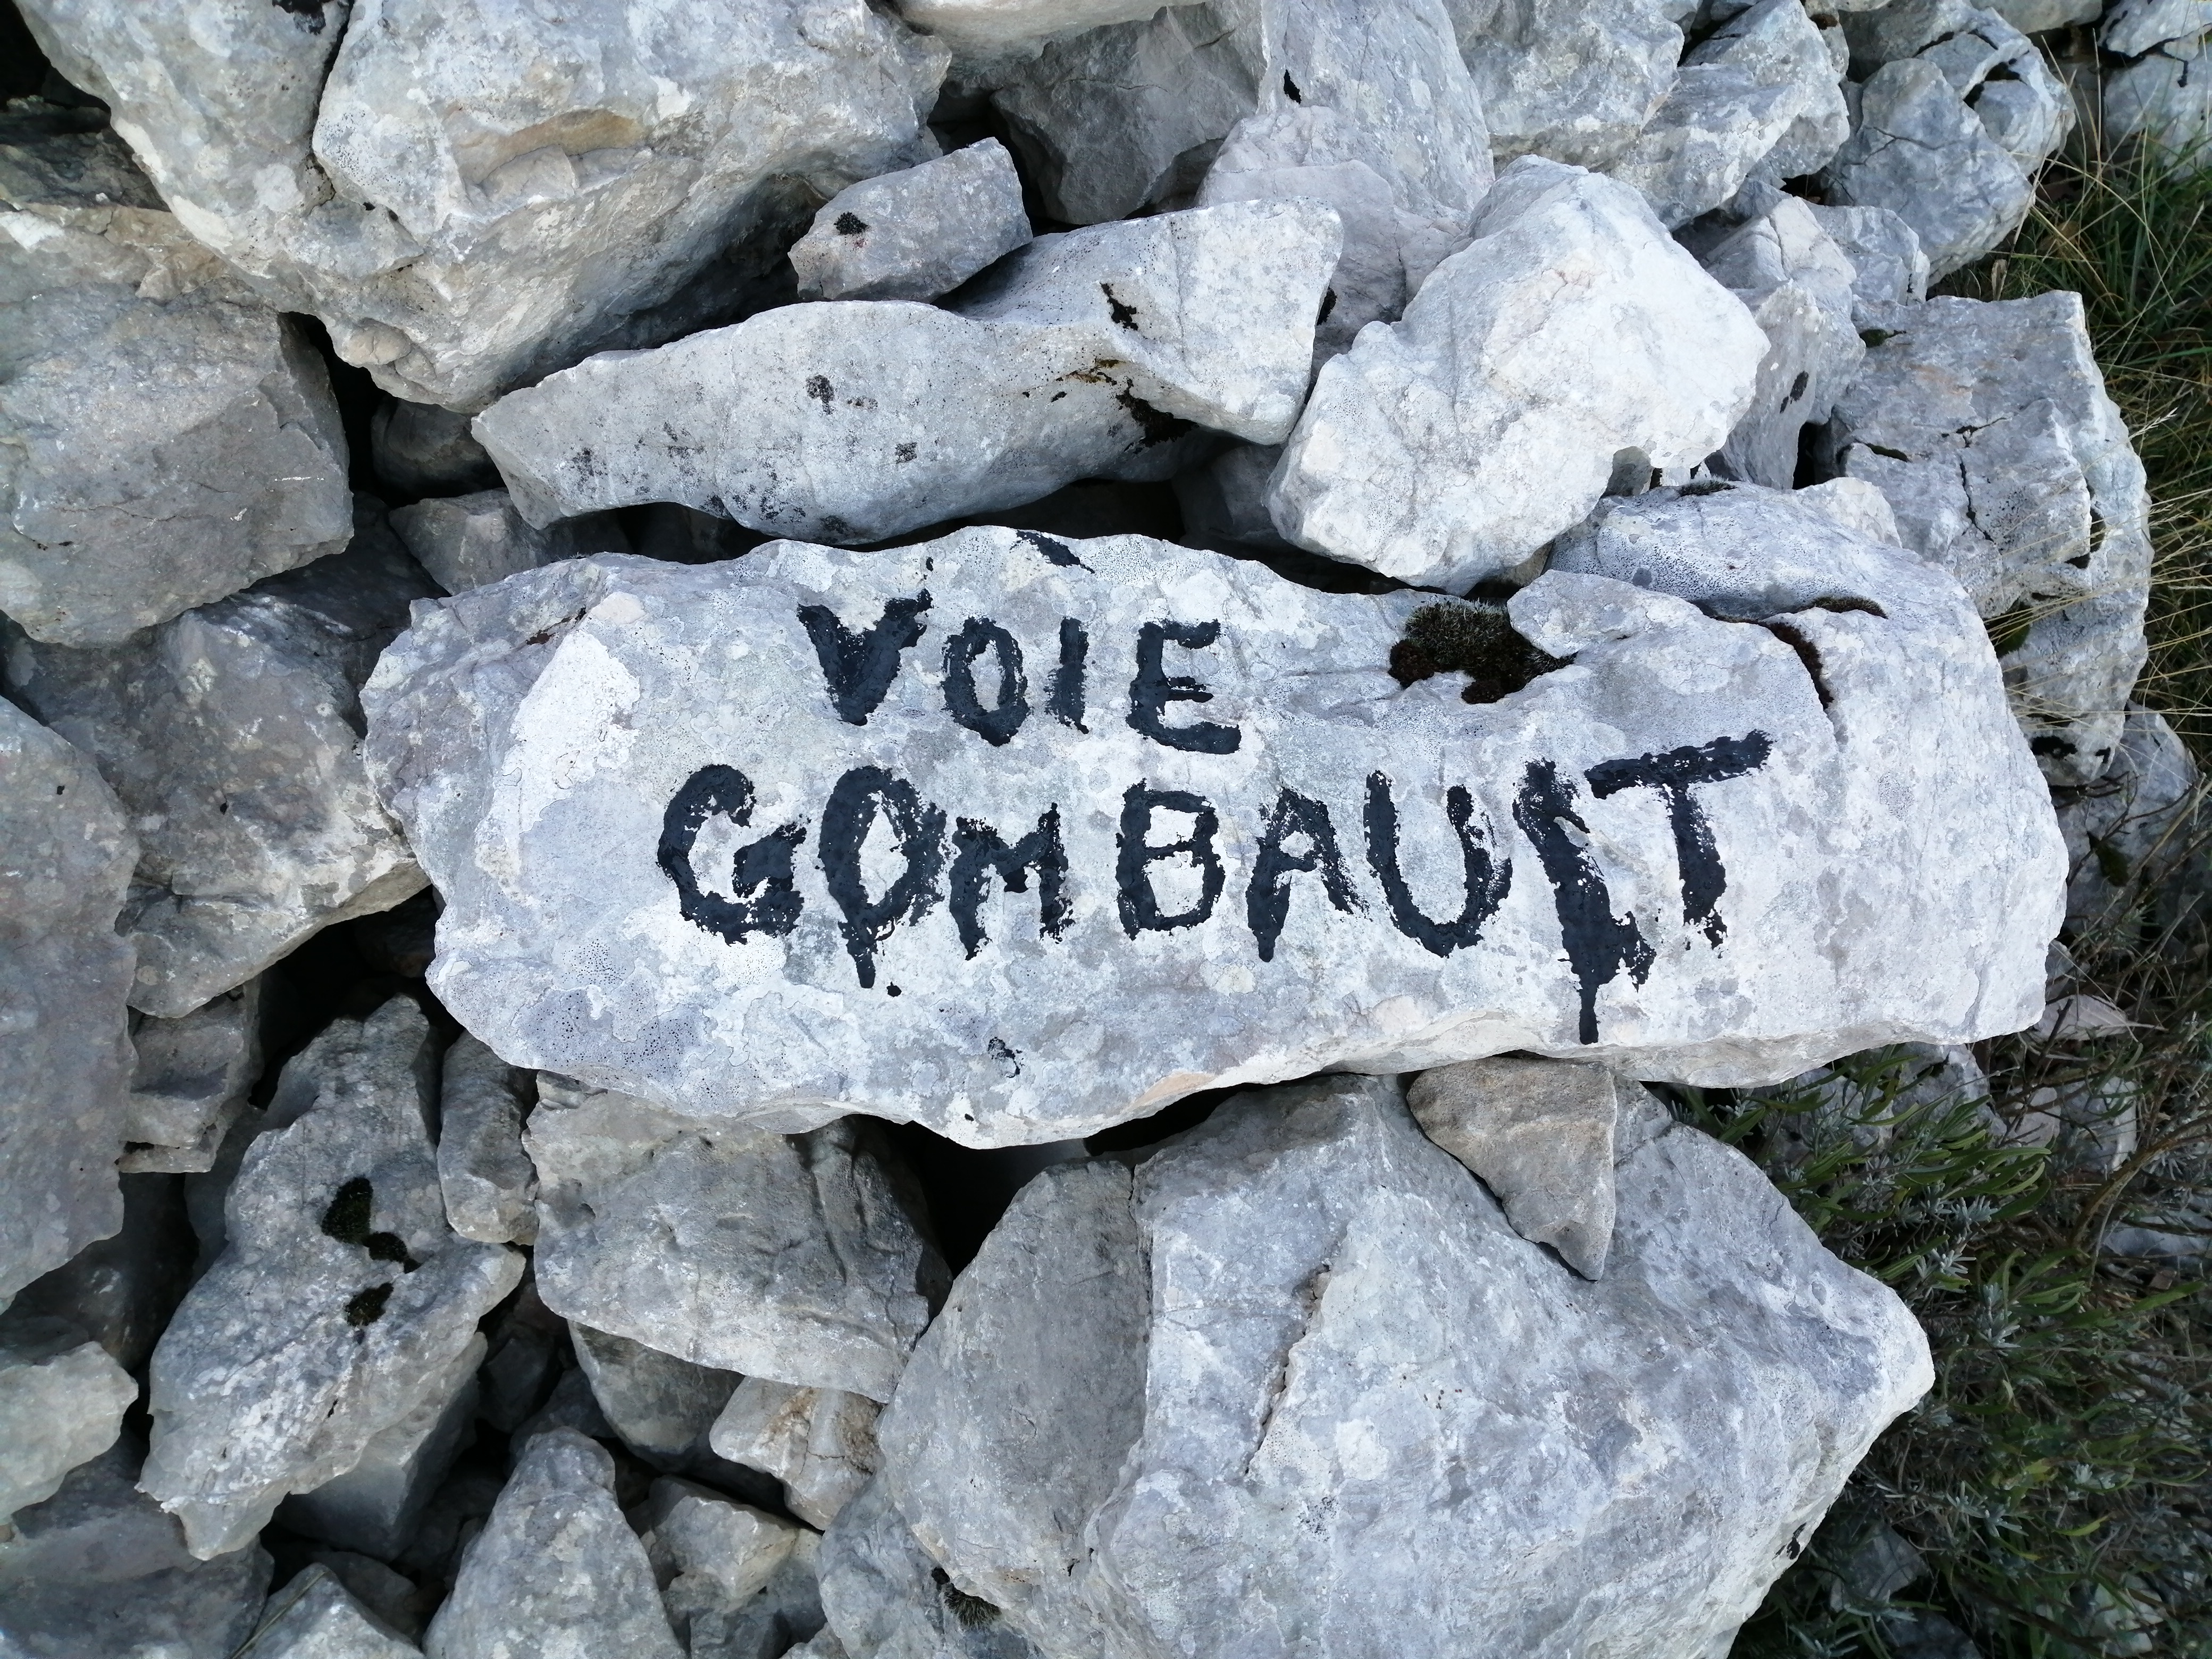 VOIE
GOMBAULT